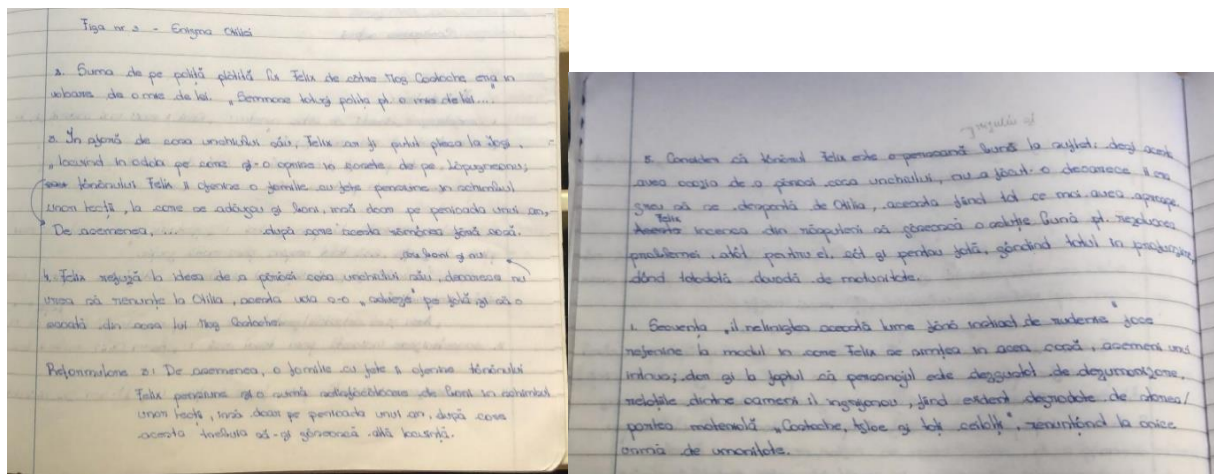 Fișa nr 3 - Enigma Otiliei
2. Suma de pe poliță plătită lui Felix de către Moș Costache era în
valoare de o mie de lei. „Semnase totuși polița pt. o mie de lei...."
3. În afară de casa unchiului său, Felix ar fi putut pleca la Iași,
„locuind în odaia pe care și-o oprise în casele de pe Lăpușneanu;
tânărului Felix îi oferise o familie cu fete pensiune în schimbul
unor lecții, la care se adăugau și bani, însă doar pe perioada unui an,
De asemenea, ... după care acesta rămânea fără casă.
4. Felix refuză la ideea de a părăsi casa unchiului său, deoarece nu
vrea să renunțe la Otilia, acesta
scoată din casa lui Moș Costache.
Reformulare 3: De asemenea, o familie cu fete îi oferise tânărului
Felix pensiune și o sumă de bani în schimbul
unor lecții, însă doar pe perioada unui an, după care
acesta trebuia să-și găsească altă locuință.
5. Consider că tânărul Felix este o persoană bună la suflet; deși acesta
avea ocazia de a părăsi casa unchiului, nu a făcut-o deoarece îi era
greu să se despartă de Otilia, aceasta fiind tot ce mai avea aproape.
Felix
încerca din răsputeri să găsească o soluție bună pt. rezolvarea
problemei, atât pentru el, cât și pentru fată, gândind totul în
dând totodată dovadă de maturitate.
1. Secvența „îl neliniștea această lume fără instinct de rudenie" face
referire la modul în care Felix se simțea în acea casă, asemeni unui
intrus; dar și la faptul că personajul este dezgustat de dezumanizare,
relațiile dintre oameni îl îngrijorau, fiind evident degradate de
partea materială „Costache, Aglae și toți ceilalți", renunțând la orice
urmă de umanitate.